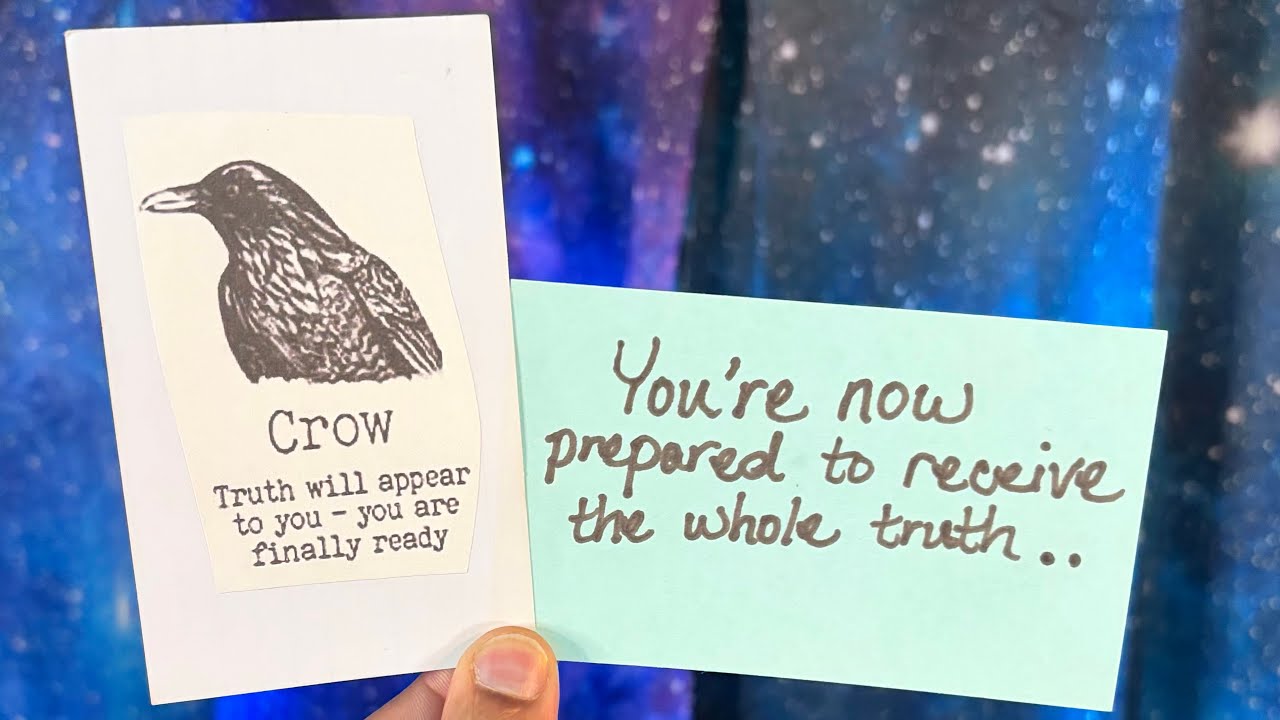 Crow
Truth will appear
to you - you are
finally ready
You're now
prepared to receive
the whole truth..